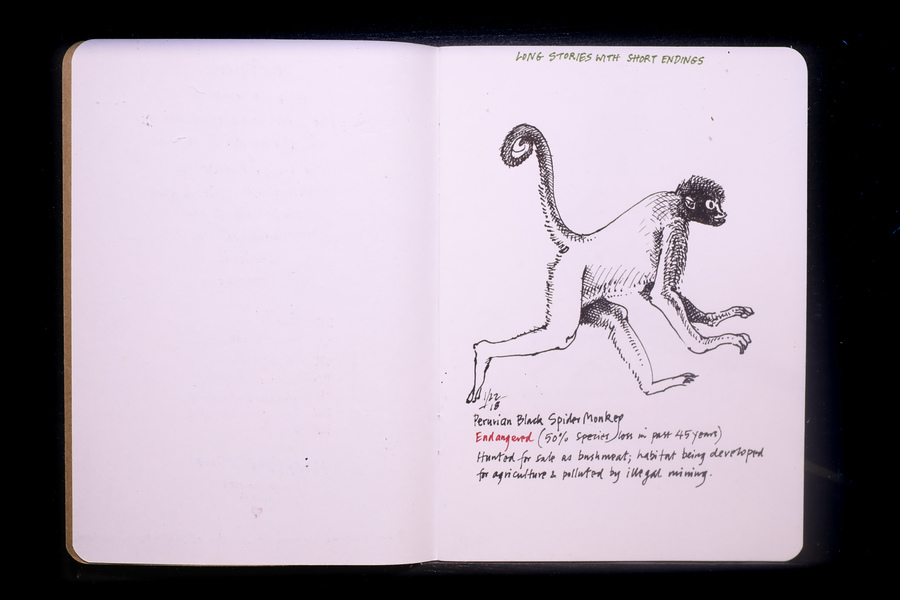 LONG STORIES WITH SHORT ENDINGS
1/22
18
Peruvian Black Spider Monkey
Endangered (50% species loss in past 45 years)
Hunted for sale as bushmeat; habitat being developed
for agriculture & polluted by illegal mining.